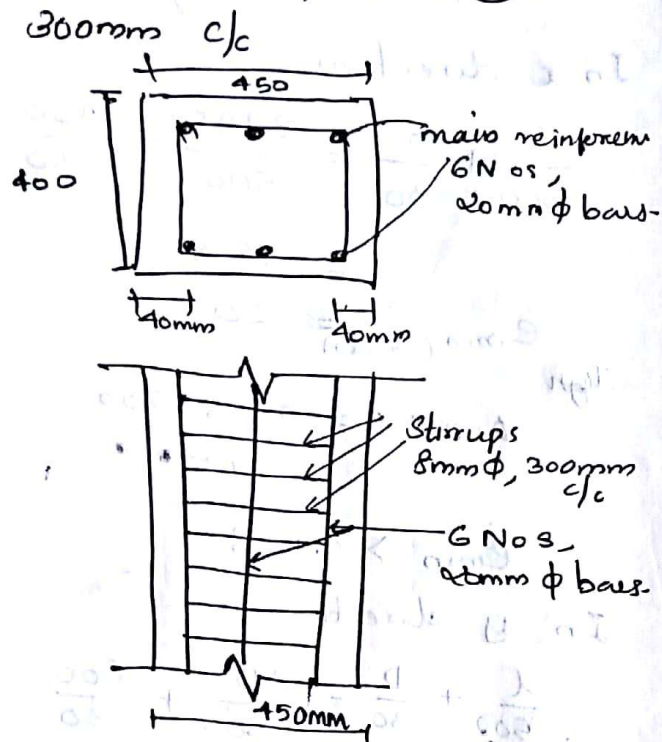 300mm c/c
450
400
main reinforcem
6 N os,
20mm ϕ bars-
40mm
40mm
Stirrups
8mm ϕ, 300mm
c/c
6 N o s,
20mm ϕ bars-
450MM